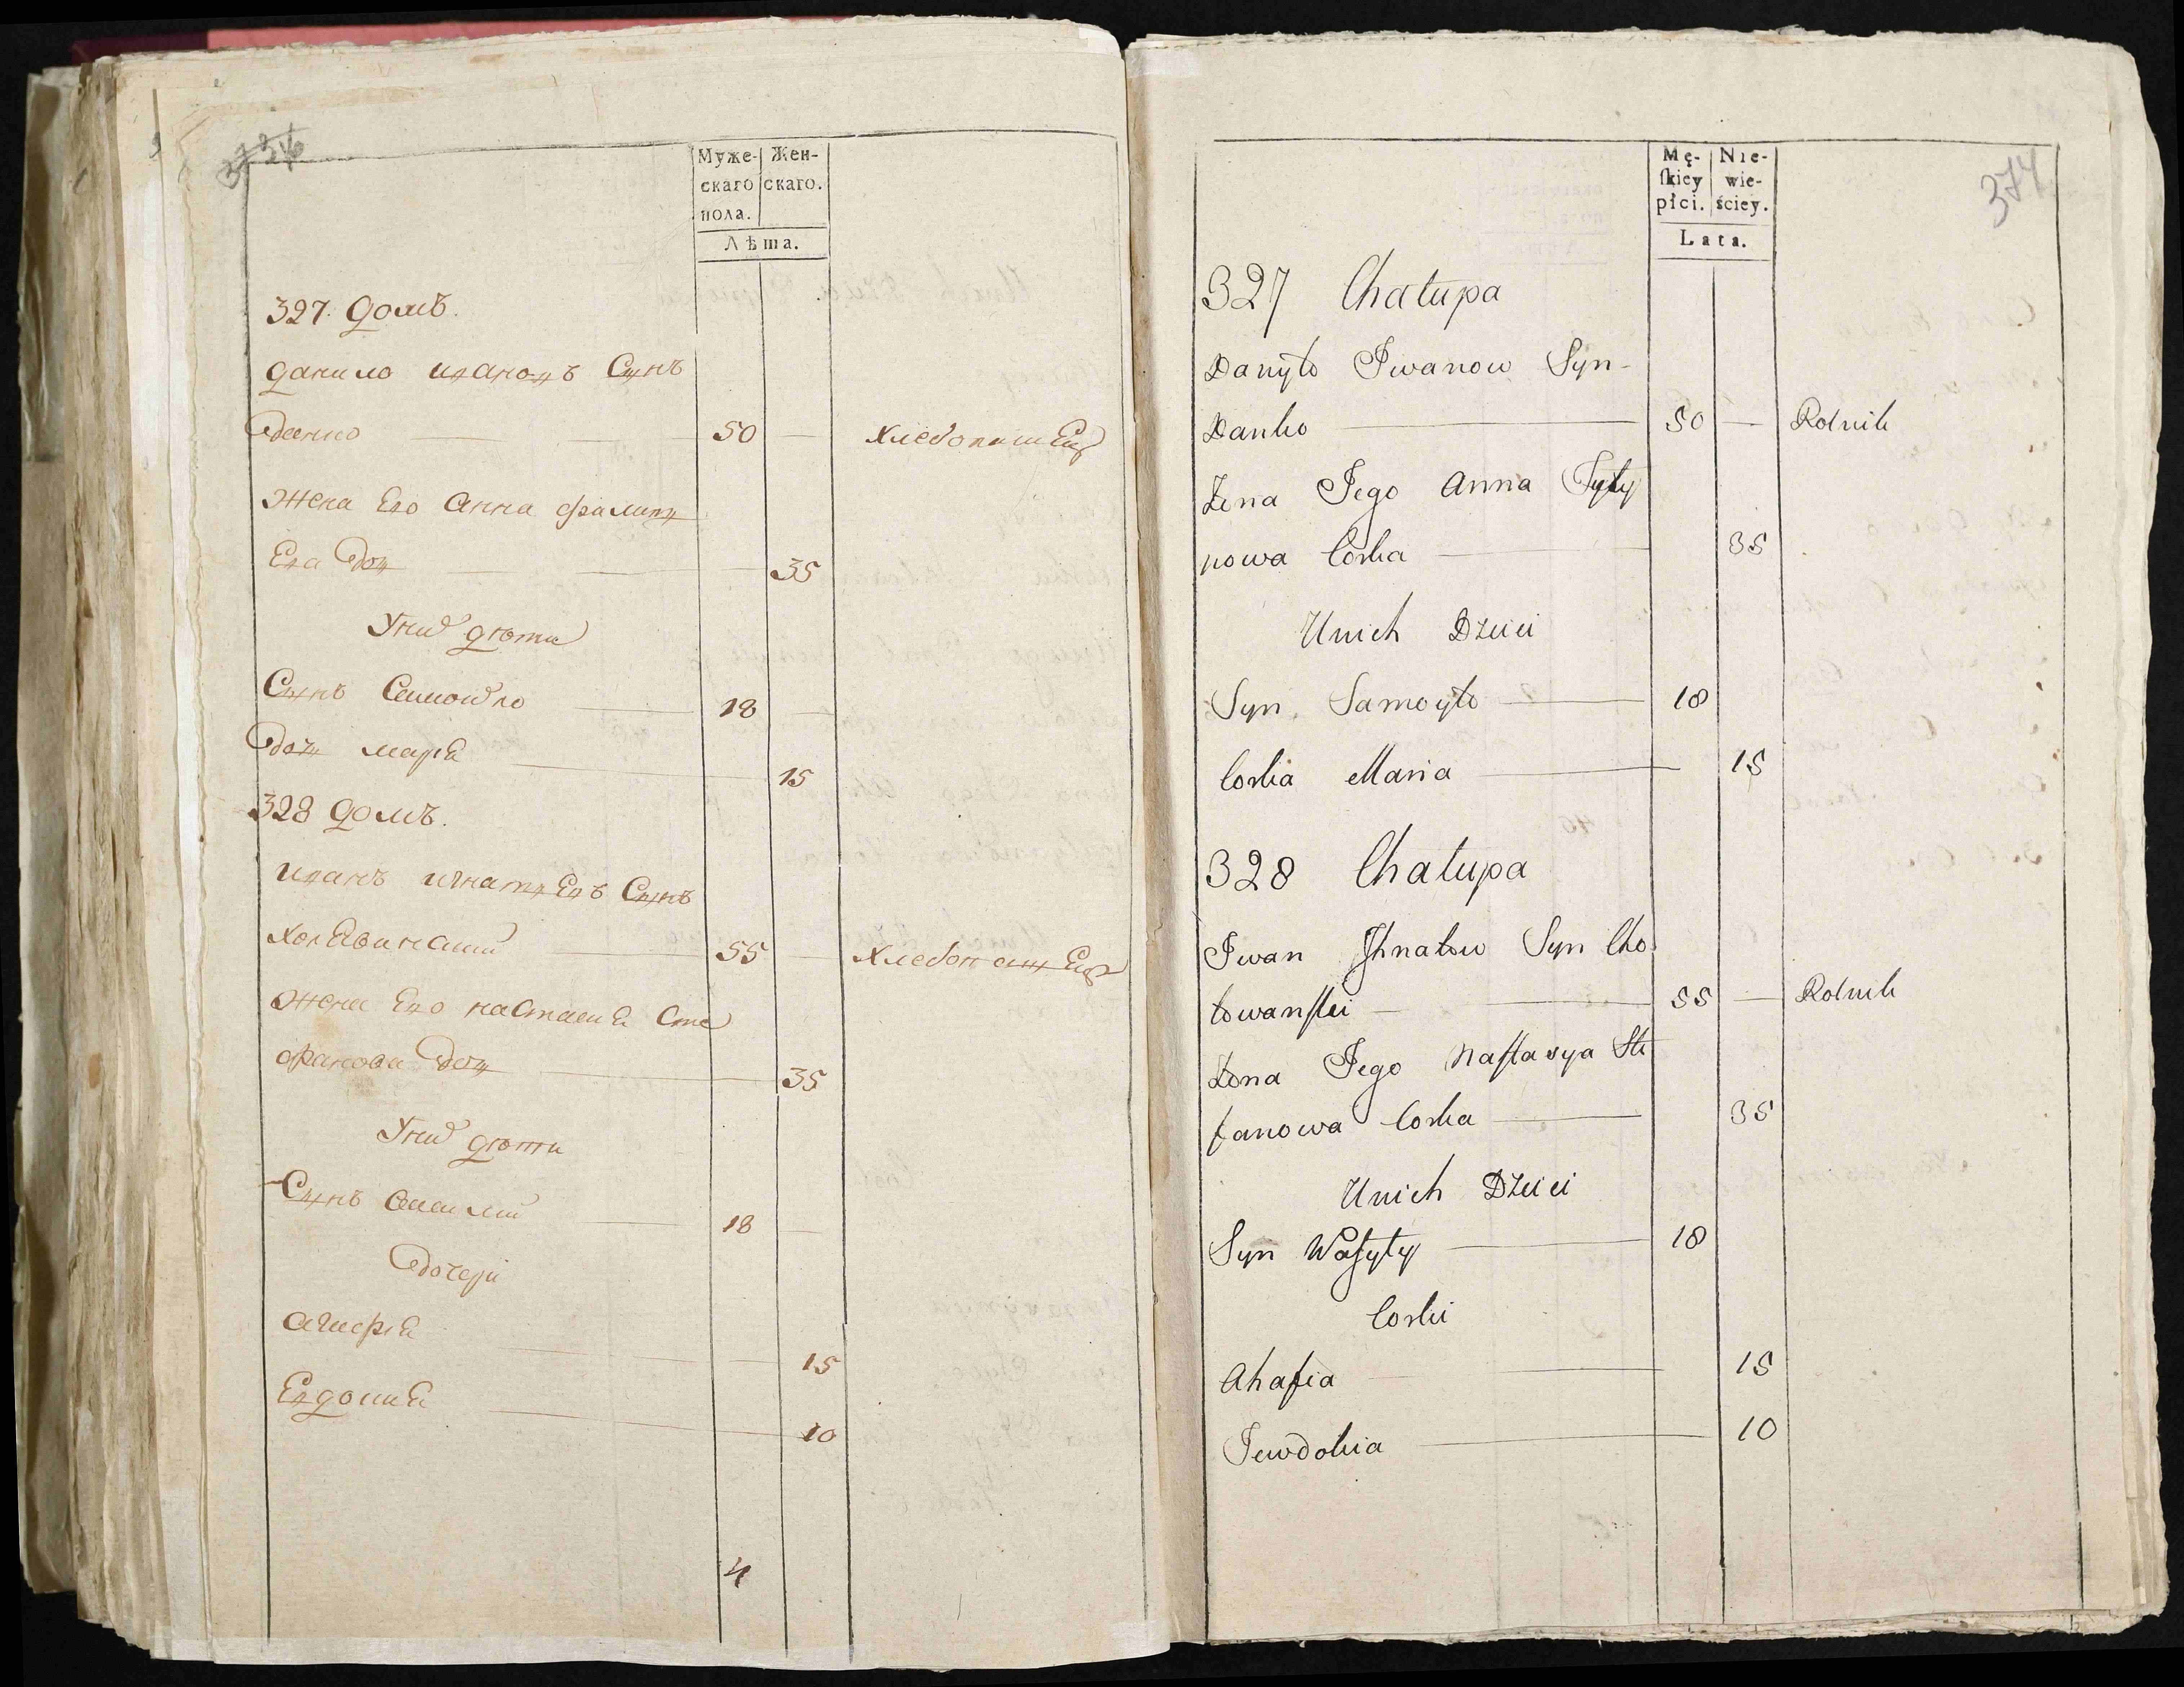 373 376
Муже- Жен-
скаго скаго.
пола.
Лѣта.
327. домъ.
данило ивановъ Сынъ
Данко 50 — хлебопашец
жена Его анна филип
Ева Доч 35
У них дѣти
Сынъ Самойло 18 —
Доч марϊя 15
328 домъ.
иванъ игнатьевъ Сынъ
55 — хлебопашец
жена Его настасия Сте
фанова Доч 35
У них дѣти
Сынъ василий 18 —
Дочерϊ
агафϊя 15
10
4
374
Mę- Nie-
ſkiey wie-
płci. ściey.
Lata.
327 Chałupa
Danyło Jwanow Syn
Danko 50 — Rolnik
Żena Jego Anna Fyły
powa Corka 35
Unich Dzieci
Syn Samoyło 18
Corka Maria 15
328 Chałupa
Jwan Jhnatow Syn Cho
łowanſki 55 — Rolnik
Żona Jego Naſtasya Ste
fanowa Corka 35
Unich Dzieci
Syn Waſyły 18
Corki
Ahafia 15
Jewdokia 10